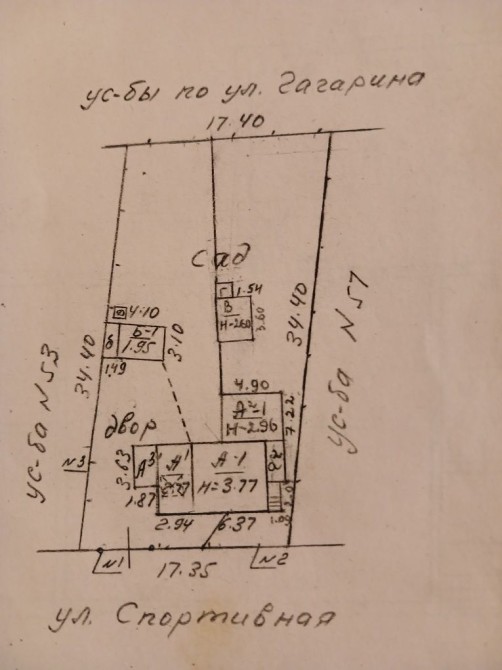 ус-бы по ул. Гагарина
17.40
Сад
Г 1.54
В
Н-2.60
3.60
4.10
б
Б-1
1.95
3.10
1.49
34.40
34.40
ус-ба N 53
ус-ба N 57
4.90
А²-1
Н-2.96
7.22
двор
N3
3.63
А³
А¹
А-1
Н=3.77
1.87
2.94
6.37
N1
17.35
N2
ул. Спортивная